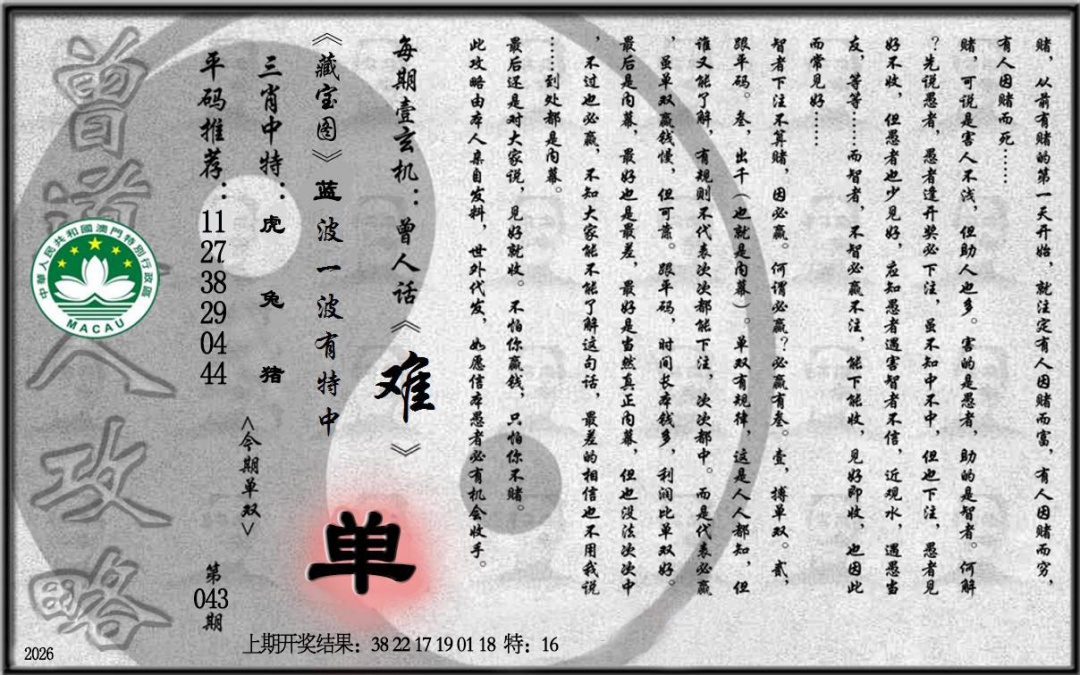 赌，从前有赌的第一天开始，就注定有人因赌而富，有人因赌而穷，
有人因赌而死……
赌，可说是害人不浅，但助人也多。害的是愚者，助的是智者。何解
？先说愚者，愚者逢开奖必下注，虽不知中不中，但也下注，愚者见
好不收，但愚者也少见好，应知愚者遇害智者不信，近观水，遇愚当
友，等等……而智者，不智必赢不注，能下能收，见好即收，也因此
而常见好……
智者下注不算赌，因必赢。何谓必赢？必赢有叁。壹，搏单双。贰，
跟平码。叁，出千（也就是内幕）。单双有规律，这是人人都知，但
谁又能了解，有规则不代表次次都能下注，次次都中。而是代表必赢
，虽单双赢钱慢，但可靠。跟平码，时间长本钱多，利润比单双好。
最后是内幕，最好也是最差，最好是当然真正内幕，但也没法次次中
，不过也必赢，不知大家能不能了解这句话，最差的相信也不用我说
……到处都是内幕。
最后还是对大家说，见好就收。不怕你赢钱，只怕你不赌。
此攻略由本人亲自发料，世外代发，如愿信本愚者必有机会收手。
每期壹玄机：曾人话《难》
《藏宝图》蓝波一波有特中
三肖中特：虎 兔 猪
平码推荐：11 27 38 29 04 44
<今期单双>
单
第043期
曾道人攻略
中華人民共和國澳門特別行政區
MACAU
上期开奖结果：38 22 17 19 01 18 特：16
2026